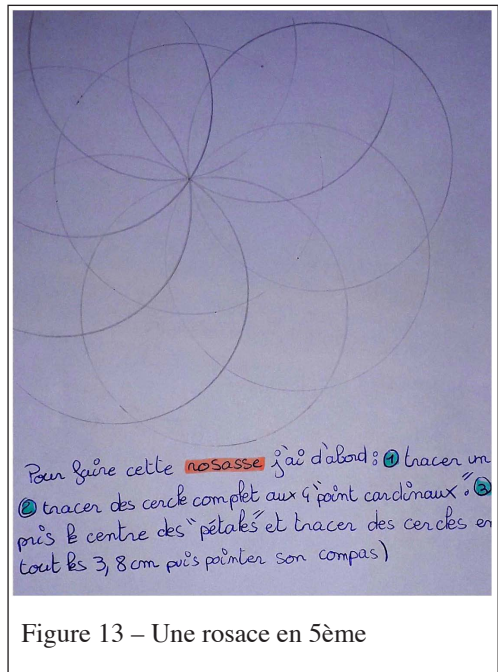 Pour faire cette rosasse j'ai d'abord : ① tracer un
② tracer des cercle complet aux 4 "point cardinaux". ③
pris le centre des "pétales" et tracer des cercles en
tout les 3,8 cm puis pointer son compas)
Figure 13 – Une rosace en 5ème